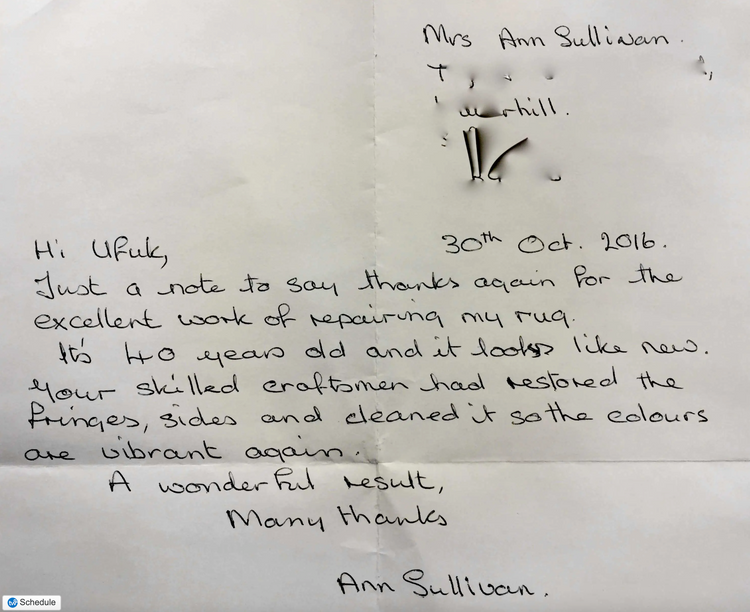 Mrs Ann Sullivan.
Hi Ufuk,
30th Oct. 2016.
Just a note to say thanks again for the
excellent work of repairing my rug.
It's 40 years old and it looks like new.
Your skilled craftsmen had restored the
fringes, sides and cleaned it so the colours
are vibrant again.
A wonderful result,
Many thanks
Ann Sullivan.
Schedule